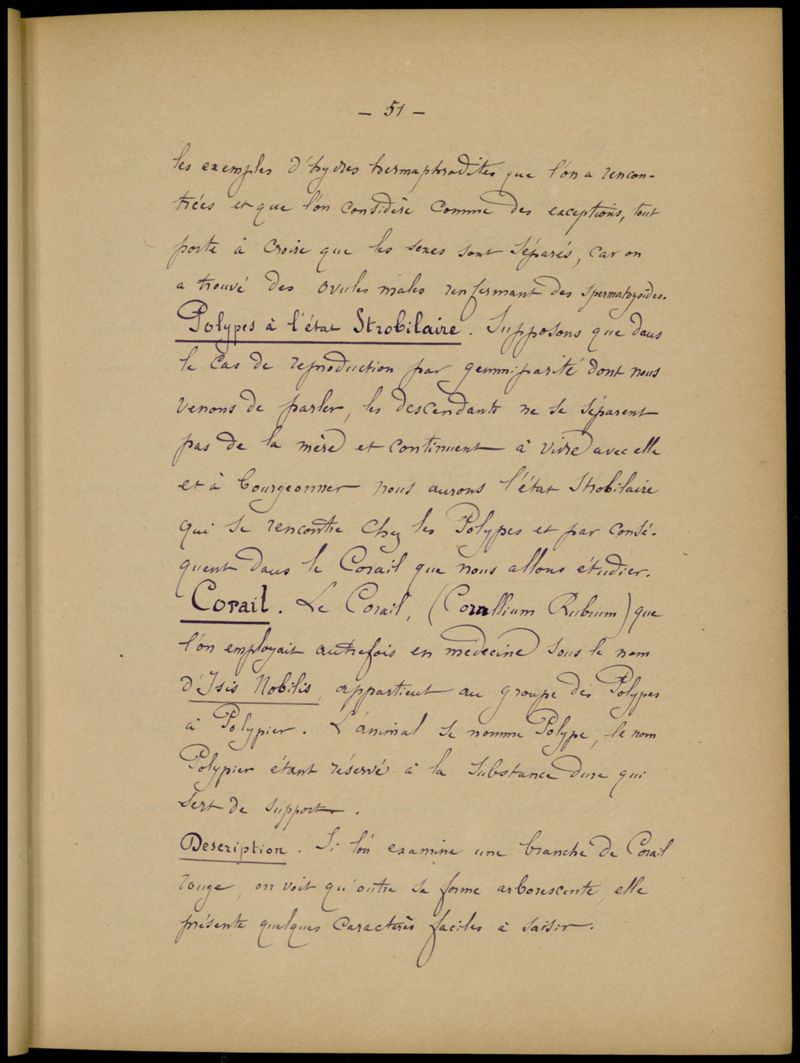 — 51 —
les exemples d'hydres hermaphrodites que l'on a rencon-
trées et que l'on considère comme des exceptions, tout
porte à croire que les sexes sont séparés, car on
a trouvé des ovules mâles renfermant des spermatozoïdes.
Polypes à l'état Strobilaire. Supposons que dans
le cas de reproduction par gemmiparité dont nous
venons de parler, les descendants ne se séparent
pas de la mère et continuent à vivre avec elle
et à bourgeonner nous aurons l'état Strobilaire
qui se rencontre chez les Polypes et par consé-
quent dans le Corail que nous allons étudier.
Corail. Le Corail, (Corallium Rubrum) que
l'on employait autrefois en médecine sous le nom
d'Isis Nobilis, appartient au groupe des Polypes
à Polypier. L'animal se nomme Polype, le nom
Polypier étant réservé à la substance dure qui
sert de support.
Description. Si l'on examine une branche de Corail
rouge, on voit qu'outre sa forme arborescente, elle
présente quelques caractères faciles à saisir.